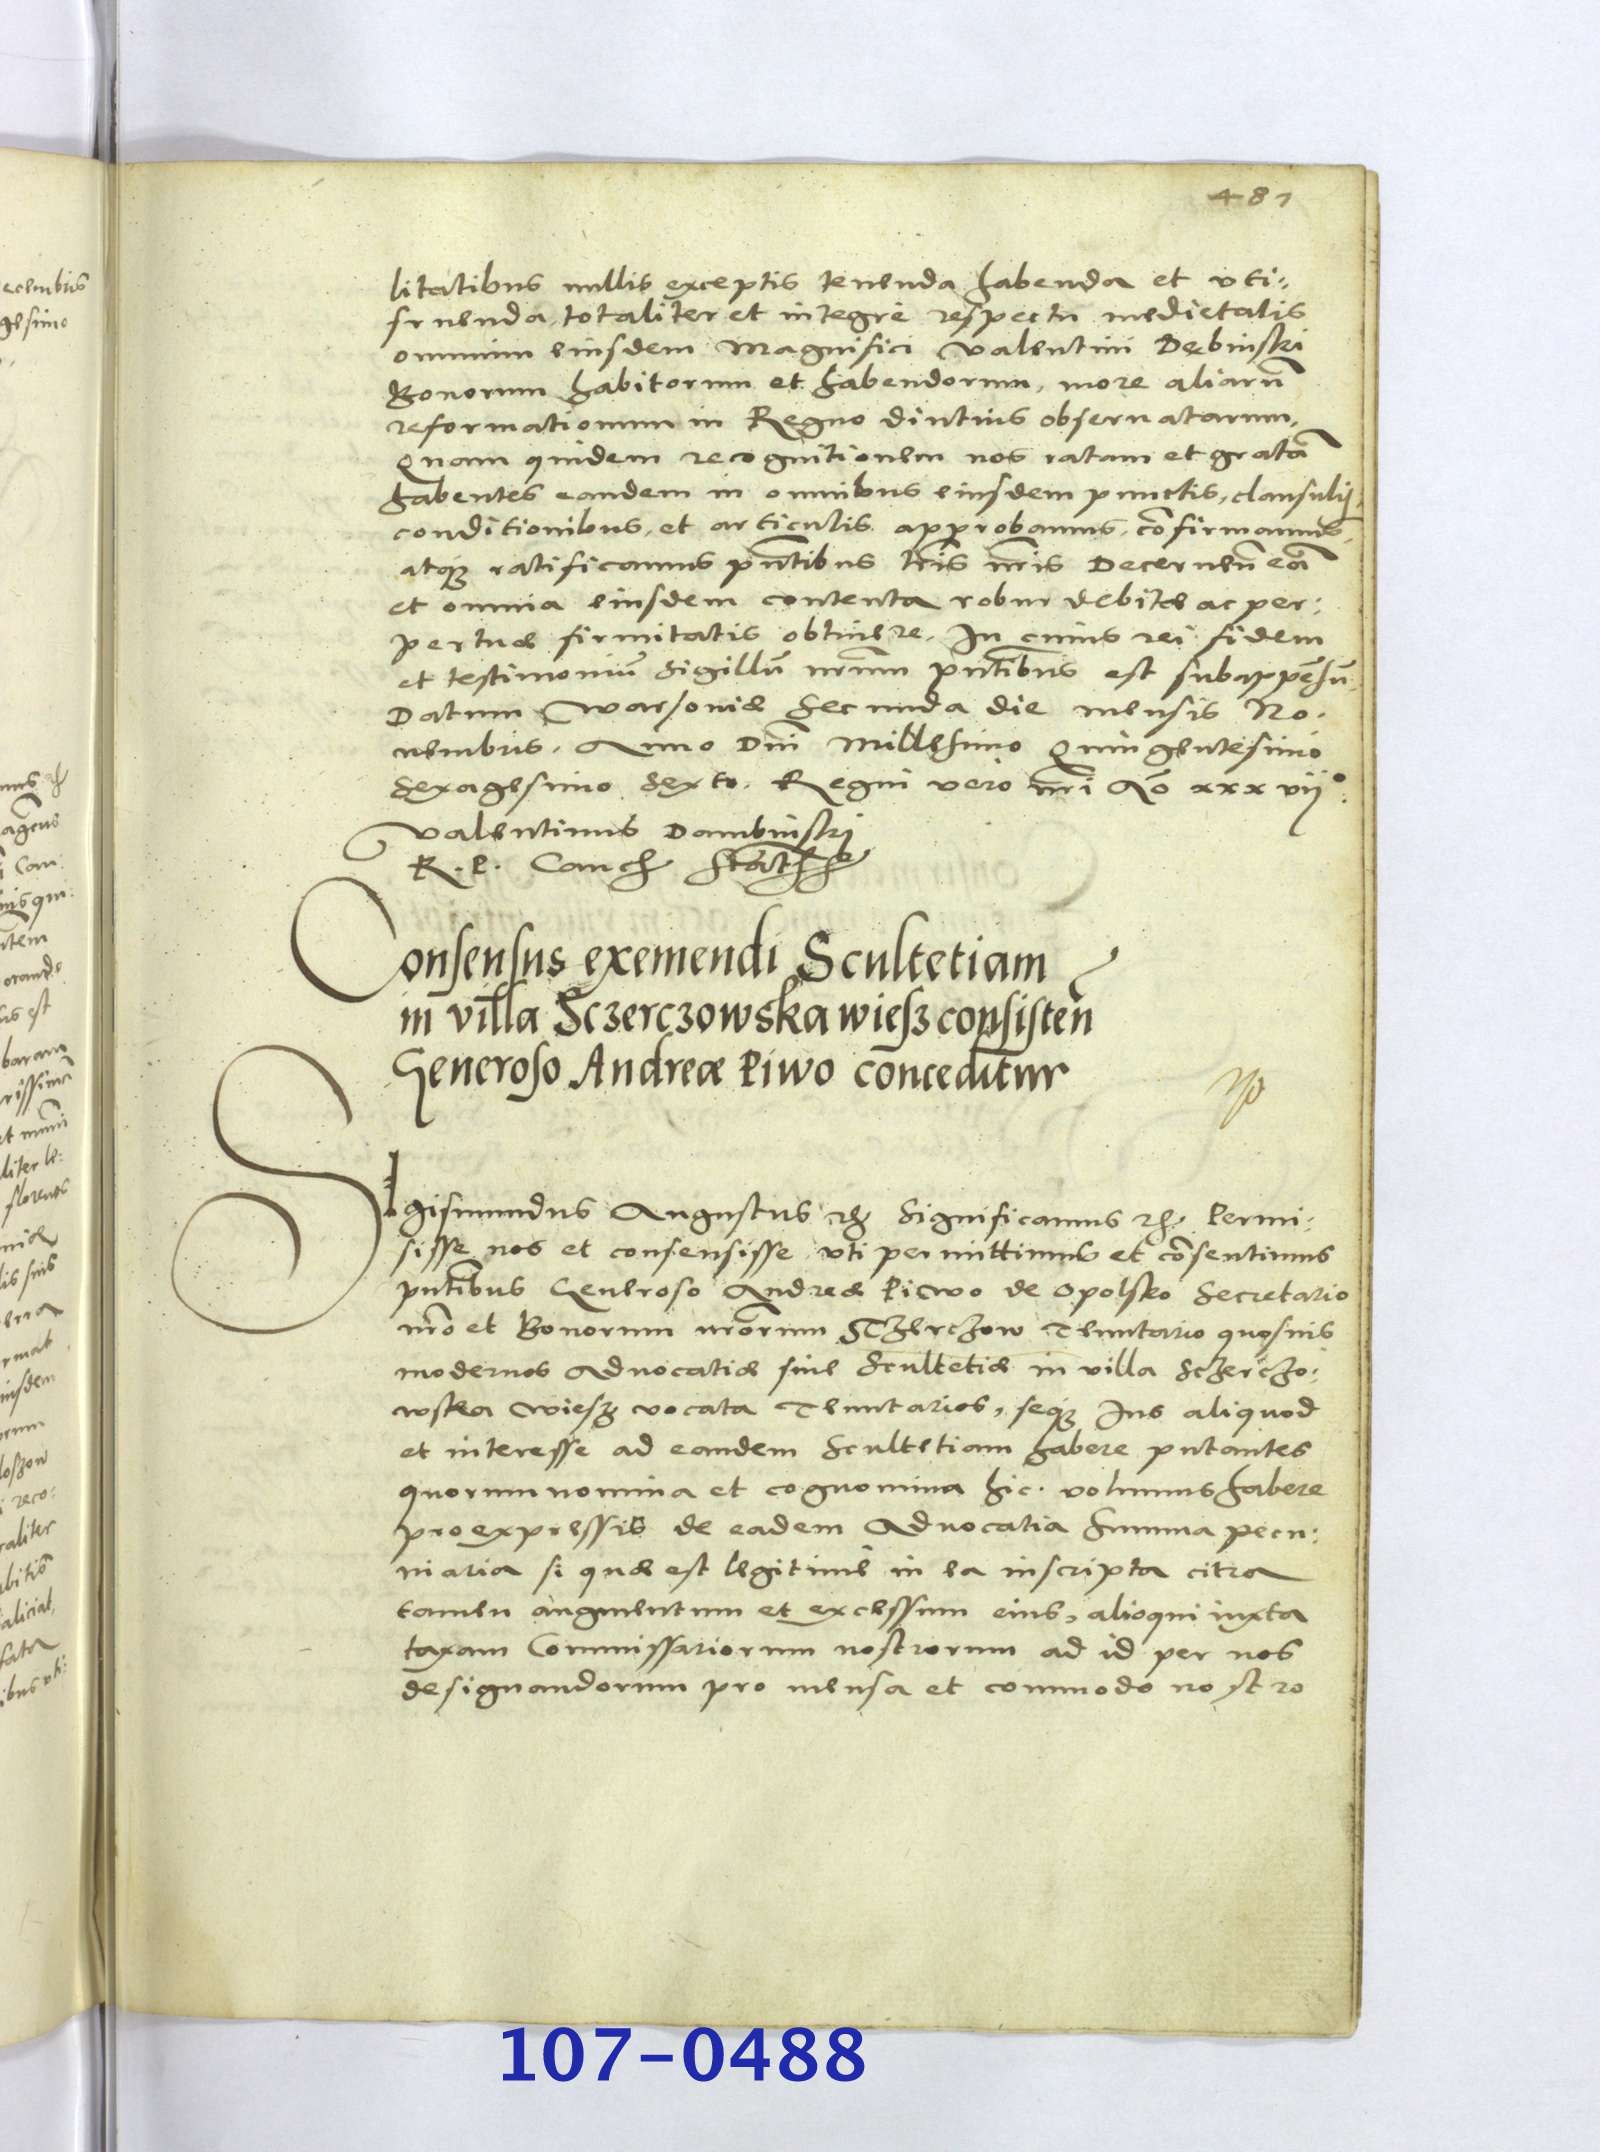 481
litatibus nullis exceptis tenenda habenda et uti-
fruenda, totaliter et integre respectu medietatis
omnium eiusdem Magnifici Valentini Dębinski
Bonorum habitorum et habendorum, more aliarũ
reformationum in Regno diutius observatarum,
Quam quidem recognitionem nos ratam et gratã
habentes eandem in omnibus eiusdem punctis, clausulis,
conditionibus, et articulis approbamus, cõfirmamus,
atq; ratificamus pñtibus lr̃is nr̃is Decernen̄ eã
et omnia eiusdem contenta robur debitæ ac per:
pertuæ firmitatis obtinere. In cuius rei fidem
et testimoniũ Sigillũ nrũm pñtibus est subappẽsũ.
Datum Warsoviæ Secunda die mensis No-
uembris. Anno Dñi Millesimo Quingentesimo
Sexagesimo Sexto. Regni vero nr̃i Aõ xxxvij°.
Valentinus Dambinski
R. P. Canc̃
Consensus exemendi Scultetiam
in villa Sczerczowska wiesz consisteñ
Generoso Andreæ Piwo conceditur
Sigismundus Augustus etc Significamus etc Permi:
sisse nos et consensisse uti permittimus et cõsentimus
pñtibus Generoso Andreæ Piwo de Opolsko Secretario
nr̃o et Bonorum nrõrum Sczerczow Tenutario quosuis
modernos Aduocatiæ siue Scultetiæ in villa Sczerczo:
wska Wiesz vocata Tenutarios, seq; Ius aliquod
et interesse ad eandem Scultetiam habere putantes
quorum nomina et cognomina hic volumus habere
pro expressis de eadem Aduocatia Summa pecu:
niaria si quæ est legitime in ea inscripta citra
tamen augmentum et excessum eius, alioqui iuxta
taxam Commissariorum nostrorum ad id per nos
designandorum pro mensa et commodo nostro
107-0488